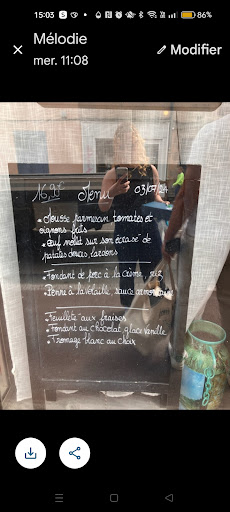 15:03
86%
Mélodie
Modifier
mer. 11:08
16,90€ Menu 03/07/24
• Mousse parmesan tomates et
oignons frits
• Œuf mollet sur son écrasé de
patates douces, lardons
• Fondant de porc à la crème, riz
• Penne à la volaille, sauce armoricaine
• Feuilleté aux fraises
• Fondant au chocolat, glace vanille
• Fromage blanc au choix